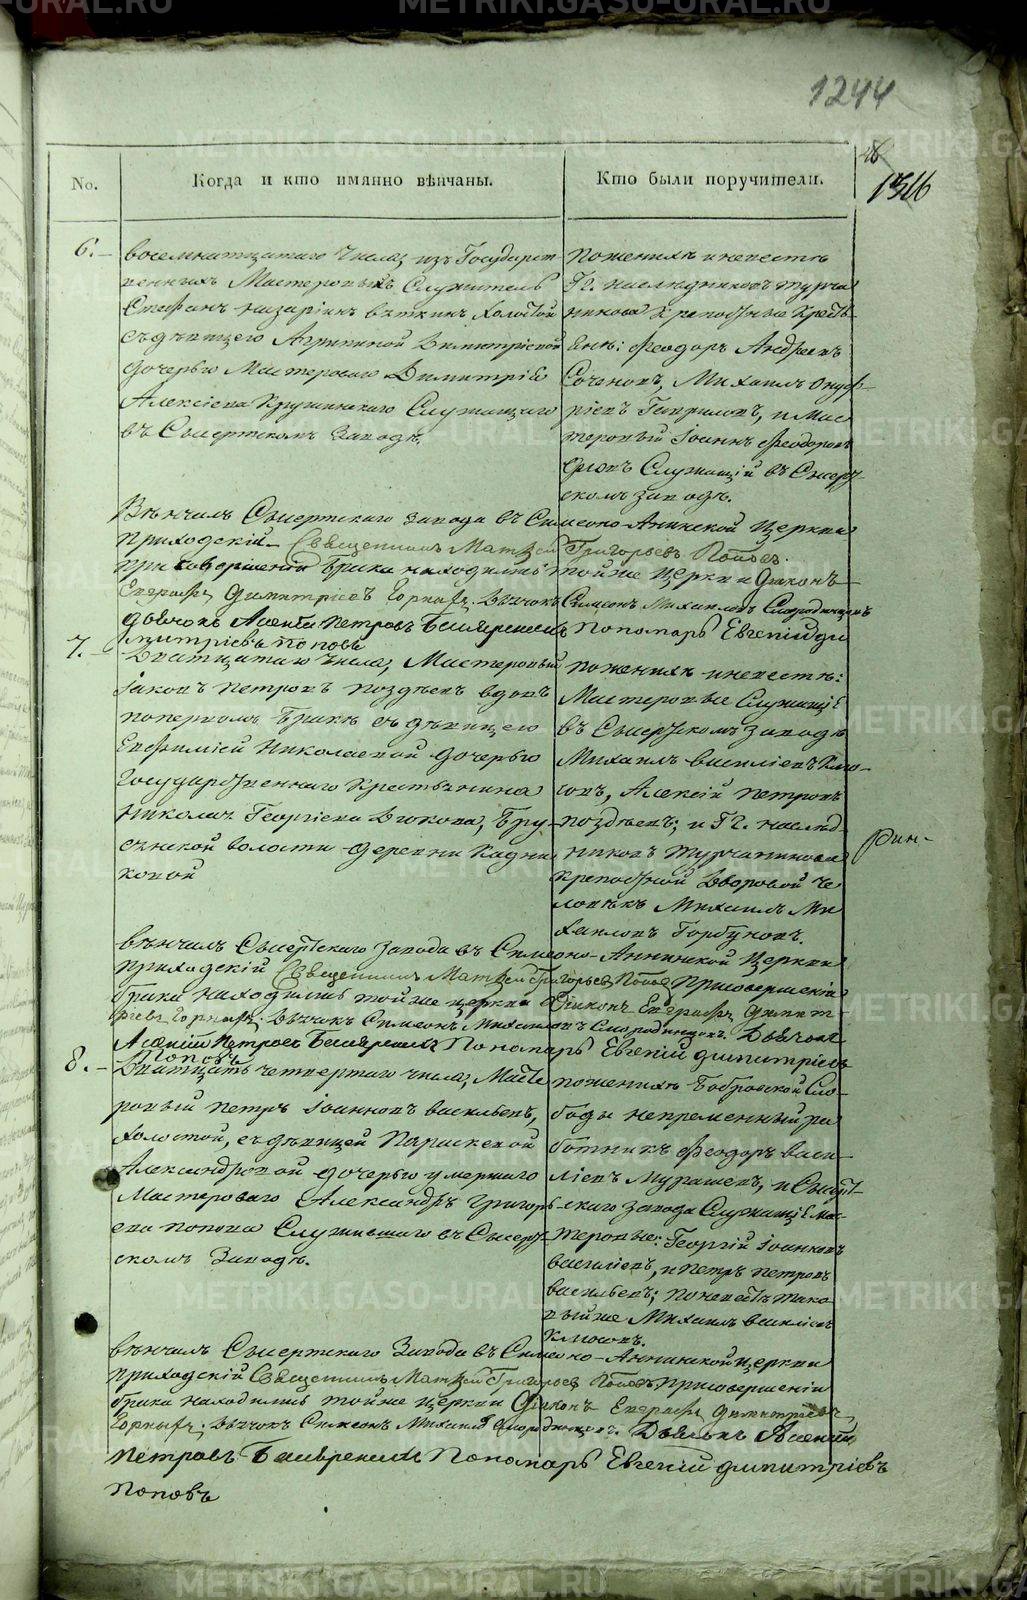 1244
No.
Когда и кто имянно вѣнчаны.
Кто были поручители.
1316
6.
восемнатцатаго числа, изъ Государст
венныхъ Мастеровыхъ Служитель
Стефанъ Назаріинъ Вяткинъ холостой
съ дѣвицею Агрипиной Димитріевой
дочерью Мастероваго Димитрія
Алексіева Крушинскаго Служащаго
въ Сысертскомъ Заводѣ.
по женихѣ и невестѣ
Гг. наслѣдниковъ Турча
нинова крепостные кресть
яне: Феодоръ Андреевъ
Михаилъ Онуф-
ріевъ Гавриловъ, и Мас
теровый Іоаннъ Феодоровъ
Служащій въ Сысерт-
скомъ заводѣ.
Вѣнчалъ Сысертскаго завода въ Симеоно-Аннинской Церкви
приходскій Священникъ Матѳей Григорьевъ Поповъ.
при совершеніи брака находились тойже церкви Діаконъ
Евграфъ Димитріевъ Горныхъ. Дьячокъ Симеонъ Михаиловъ Смородинцовъ
дьячокъ Асеній Петровъ Пономарь Евгеній Ди
митріевъ Поповъ
7.
Дватцатаго числа, Мастеровый
Іаковъ Петровъ Поздѣевъ вдовъ
по первомъ бракѣ съ дѣвицею
Евфиміей Николаевой дочерью
Государственнаго Крестьянина
Николая Георгіева Быкова, Бру-
сянской волости деревни Кадни
ковой
по женихѣ и невестѣ:
Мастеровые Служащіе
въ Сысертскомъ заводѣ
Михаилъ Василіевъ Клю-
совъ, Алексій Петровъ
Поздѣевъ; и Гг. наслѣд
никовъ Турчанинова
крепостной дворовой че
ловѣкъ Михаилъ Ми
хаиловъ Горбуновъ.
вѣнчалъ Сысертскаго Завода въ Симеоно-Аннинской Церкви
приходскій Священникъ Матѳей Григорьевъ Поповъ при совершеніи
брака находились тойже церкви Діаконъ Евграфъ Димит-
ріевъ Горныхъ. Дьячокъ Симеонъ Михаиловъ Смородинцовъ. Дьячокъ
Асеній Петровъ Пономарь Евгеній Димитріевъ
Поповъ
8.
Дватцать четвертаго числа, Масте
ровый Петръ Іоанновъ Васильевъ,
холостой, съ дѣвицей Параскевой
Александровой дочерью умершаго
Мастероваго Александра Григорь-
ева Попова Служившаго въ Сысерт-
скомъ Заводѣ.
по женихѣ Бобровской Сло-
боды непременный ра
ботникъ Феодоръ Васи-
ліевъ Мурашевъ, и Сысерт-
скаго завода Служащіе Мас-
теровые: Георгій Іоанновъ
Василіевъ, и Петръ Петровъ
Васильевъ; по невестѣ тако
выйже Михаилъ Василіевъ
Клюсовъ.
вѣнчалъ Сысертскаго Завода въ Симеоно-Аннинской церкви
приходскій Священникъ Матѳей Григорьевъ Поповъ, при совершеніи
брака находились тойже церкви Діаконъ Евграфъ Димитріевъ
Горныхъ. Дьячокъ Симеонъ Михаиловъ Смородинцовъ. Дьячокъ Асеній
Петровъ Пономарь Евгеній Димитріевъ
Поповъ
METRIKI.GASO-URAL.RU